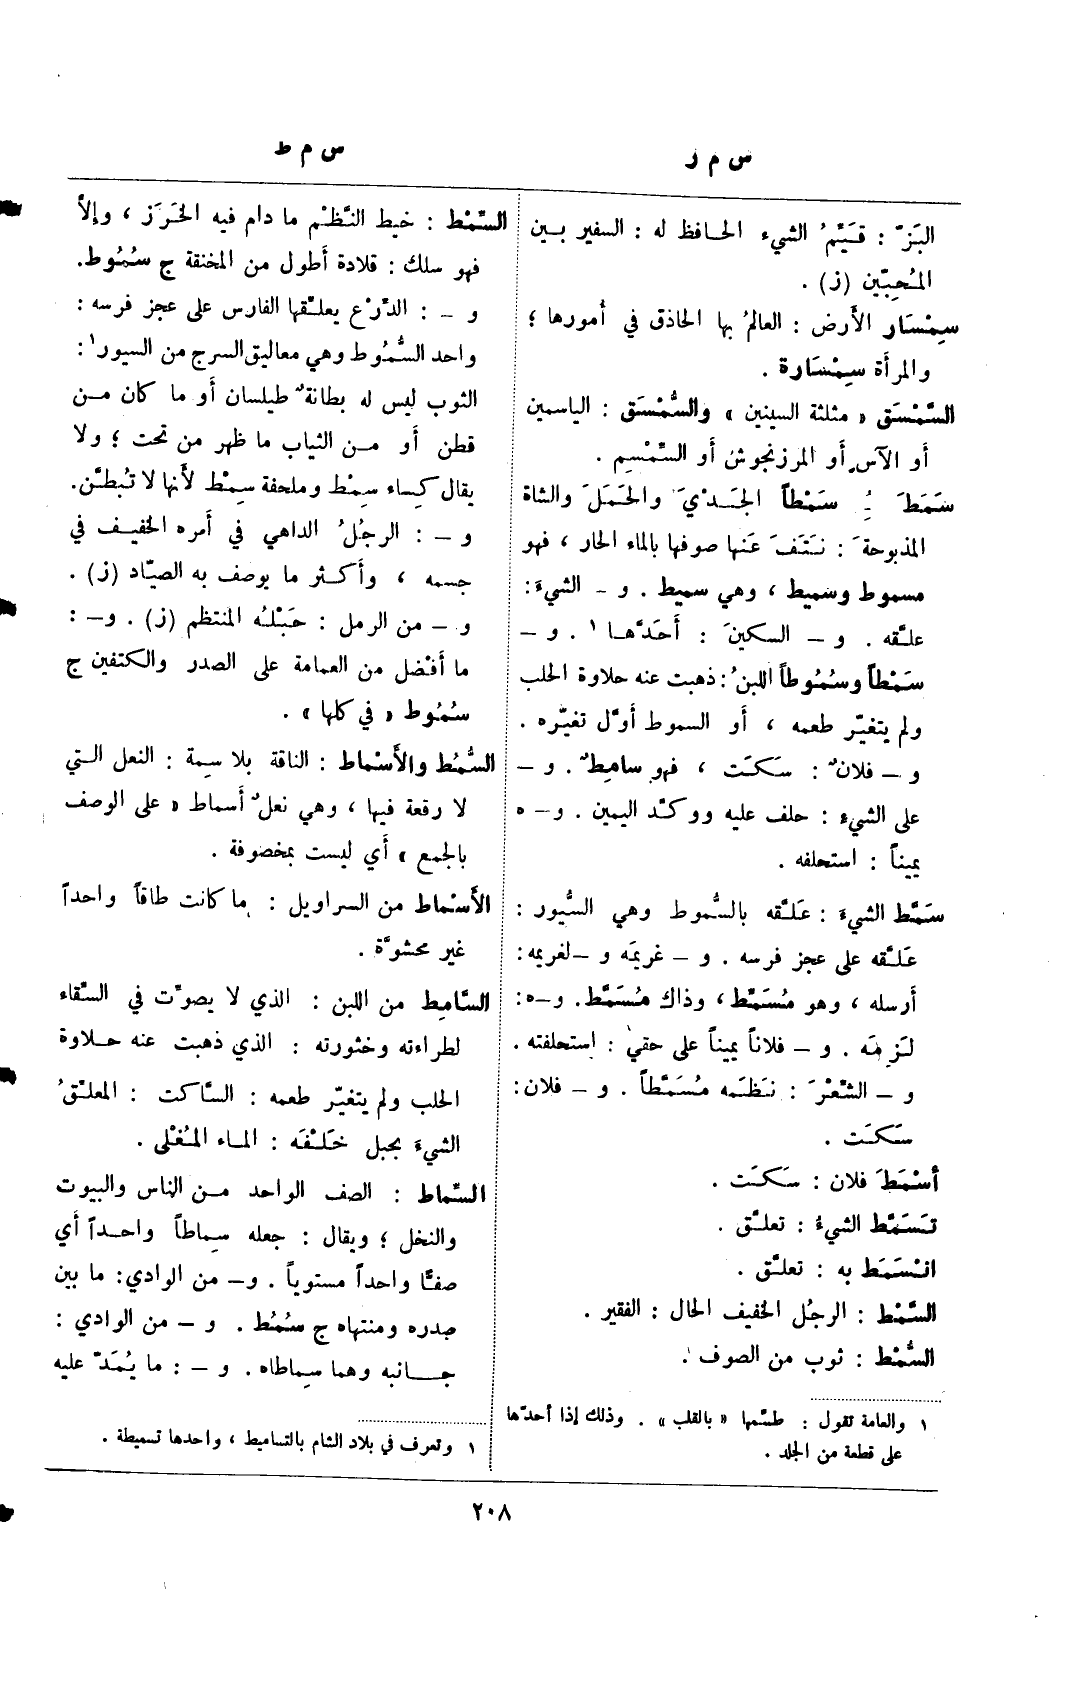 س م ر
البَزّ : قَيِّمُ الشيء الحافظ له : السفير بين
المُحِبّين (ز) .
سِمْسَار الأرض : العالمُ بها الحاذق في أمورها ؛
والمرأة سِمْسَارة .
السَّمْسَق « مثلثة السينين » والسُّمْسَق : الياسمين
أو الآس أو المرزنجوش أو السِّمْسِم .
سَمَطَ ـُِ سَمْطاً الجَدْيَ والحَمَلَ والشاة
المذبوحةَ : نَتَفَ عَنها صوفها بالماء الحار ، فهو
مسموط وسَميط ، وهي سميط . و – الشيءَ :
علّقه . و – السكينَ : أَحَدَّها ١ . و –
سَمْطاً وسُمُوطاً اللبنُ : ذهبت عنه حلاوة الحلب
ولم يتغيّر طعمه ، أو السموط أوّل تغيّره .
و – فلانٌ : سَكَت ، فهو سامِطٌ . و –
على الشيء : حلف عليه ووكّد اليمين . و– ه
يميناً : استحلفه .
سَمَّط الشيءَ : عَلّقه بالسُّموط وهي السُّيور :
عَلّقه على عجز فرسه . و – غريمَه و –لغريمه :
أرسله ، وهو مُسَمِّط ، وذاك مُسَمَّط . و–ه :
لَزِمَه . و – فلاناً يميناً على حقي : إستحلفته .
و – الشِّعْرَ : نَظَمه مُسَمَّطاً . و – فلان :
سَكَت .
أسْمَطَ فلان : سَكَت .
تَسَمَّط الشيءُ : تعلّق .
انْسَمَط به : تعلّق .
السَّمْط : الرجُل الخفيف الحال : الفقير .
السُّمْط : ثوب من الصوف .
١ والعامة تقول : طسّمها « بالقلب » . وذلك إذا أحدّها
على قطعة من الجلد .
س م ط
السِّمْط : خيط النَّظْم ما دام فيه الخَرَز ، وإلاّ
فهو سلك : قلادة أطول من المخنقة ج سُمُوط.
و – : الدِّرْع يعلّقها الفارس على عجز فرسه :
واحد السُّمُوط وهي معاليق السرج من السيور ١ :
الثوب ليس له بطانةٌ طيلسان أو ما كان من
قطن أو من الثياب ما ظهر من تحت ؛ ولا
يقال كِساء سِمْط وملحفة سِمْط لأنها لا تُبطَّن.
و – : الرجُلُ الداهي في أمره الخفيف في
جسمه ، وأكثر ما يوصف به الصيّاد (ز) .
و – من الرمل : حَبْلُه المنتظم (ز) . و– :
ما أفضل من العمامة على الصدر والكتفين ج
سُمُوط « في كلها » .
السُّمُط والأَسْماط : الناقة بلا سِمة : النعل التي
لا رقعة فيها ، وهي نعلٌ أسماط « على الوصف
بالجمع » أي ليست بمخصوفة .
الأَسْماط من السراويل : ما كانت طاقاً واحداً
غير محشوَّة .
السَّامِط من اللبن : الذي لا يصوّت في السِّقاء
لطراءته وخثورته : الذي ذهبت عنه حلاوة
الحلب ولم يتغيّر طعمه : السَّاكت : المعلّقُ
الشيءَ بحبل خَلْفَه : الماء المُغْلى .
السِّماط : الصف الواحد من الناس والبيوت
والنخل ؛ ويقال : جعله سِماطاً واحداً أي
صفًّا واحداً مستوياً . و– من الوادي : ما بين
صدره ومنتهاه ج سُمُط . و – من الوادي :
جانبه وهما سِماطاه . و – : ما يُمَدّ عليه
١ وتعرف في بلاد الشام بالتساميط ، واحدها تسميطة .
٢٠٨